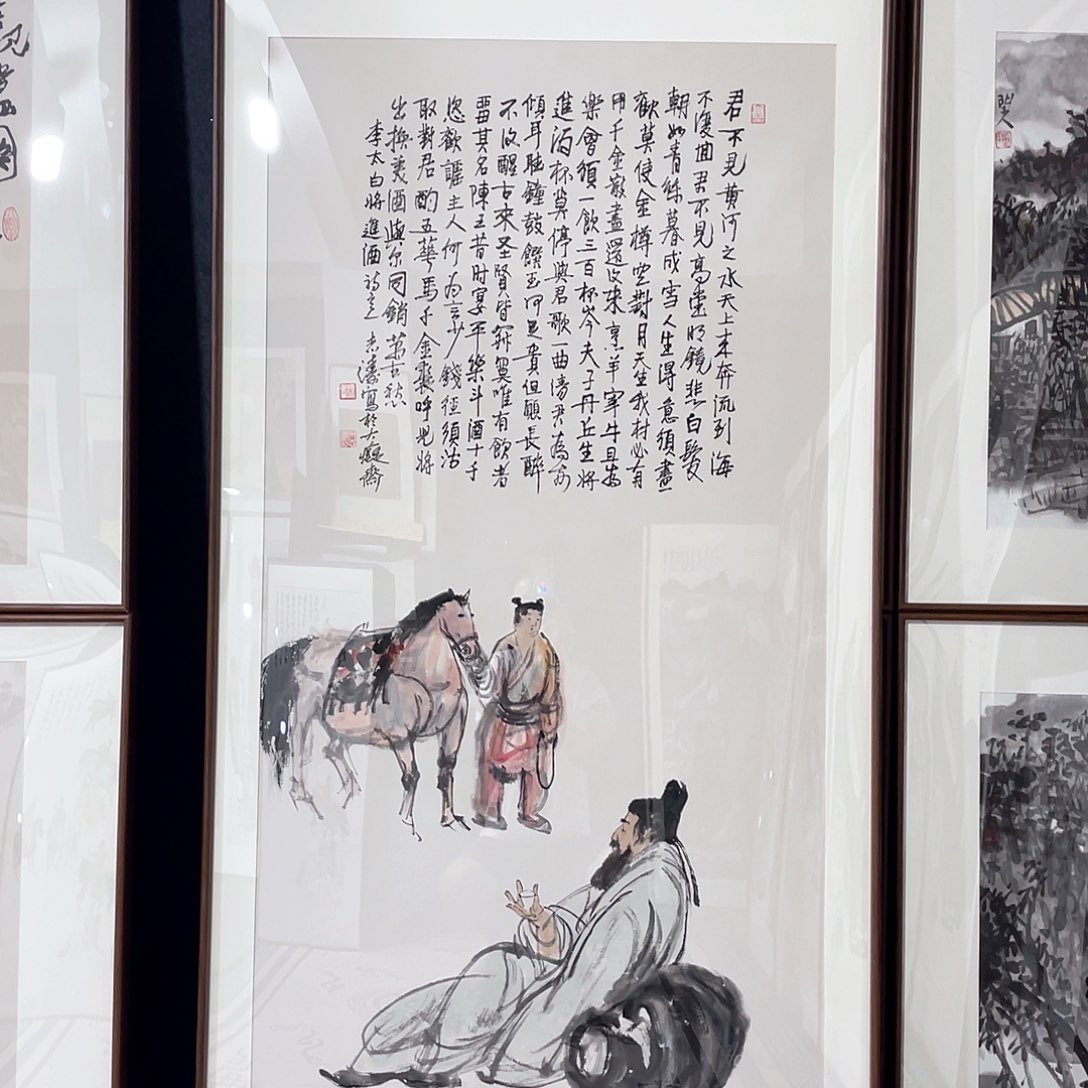 君不見黃河之水天上來奔流到海
不復回君不見高堂明鏡悲白髮
朝如青絲暮成雪人生得意須盡
歡莫使金樽空對月天生我材必有
用千金散盡還復來烹羊宰牛且為
樂會須一飲三百杯岑夫子丹丘生將
進酒杯莫停與君歌一曲請君為我
傾耳聽鐘鼓饌玉何足貴但願長醉
不復醒古來圣賢皆寂寞唯有飲者
留其名陳王昔时宴平樂斗酒十千
恣歡謔主人何為言少錢徑須沽
取對君酌五華馬千金裘呼兒將
出換美酒與尔同銷萬古愁
李太白將進酒詩意 志潘寫於大癡齋